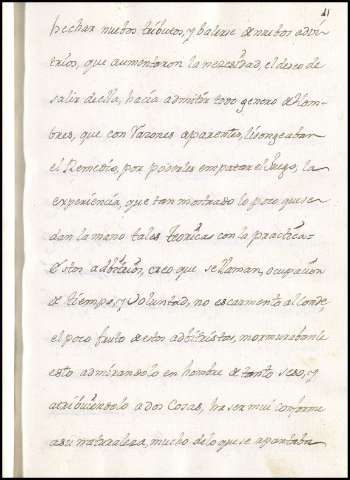 21
hechar nuebos tributos, y balerse de nuebos advi-
trios, que aumentaron la necesidad, el deseo de
salir de ella, hacia admitir todo genero de Hom-
bres, que con razones aparentes, lisongeaban
el Remedio, por poderles empatar el luego, la
experiencia, que tan mostrado lo poco que se
dan la mano tales teoricas con la practica.
Estos adbitrios, creo que se llaman, ocupacion
de tiempo, y Voluntad, no escarmento al Conde,
el poco fruto de estos adbitristas, mormurabanle
esto admirandolo en hombre de tanto seso, y
atribuiendolo a dos Cosas, ha ser mui conforme
a su naturaleza, mucho de lo que se apartaba